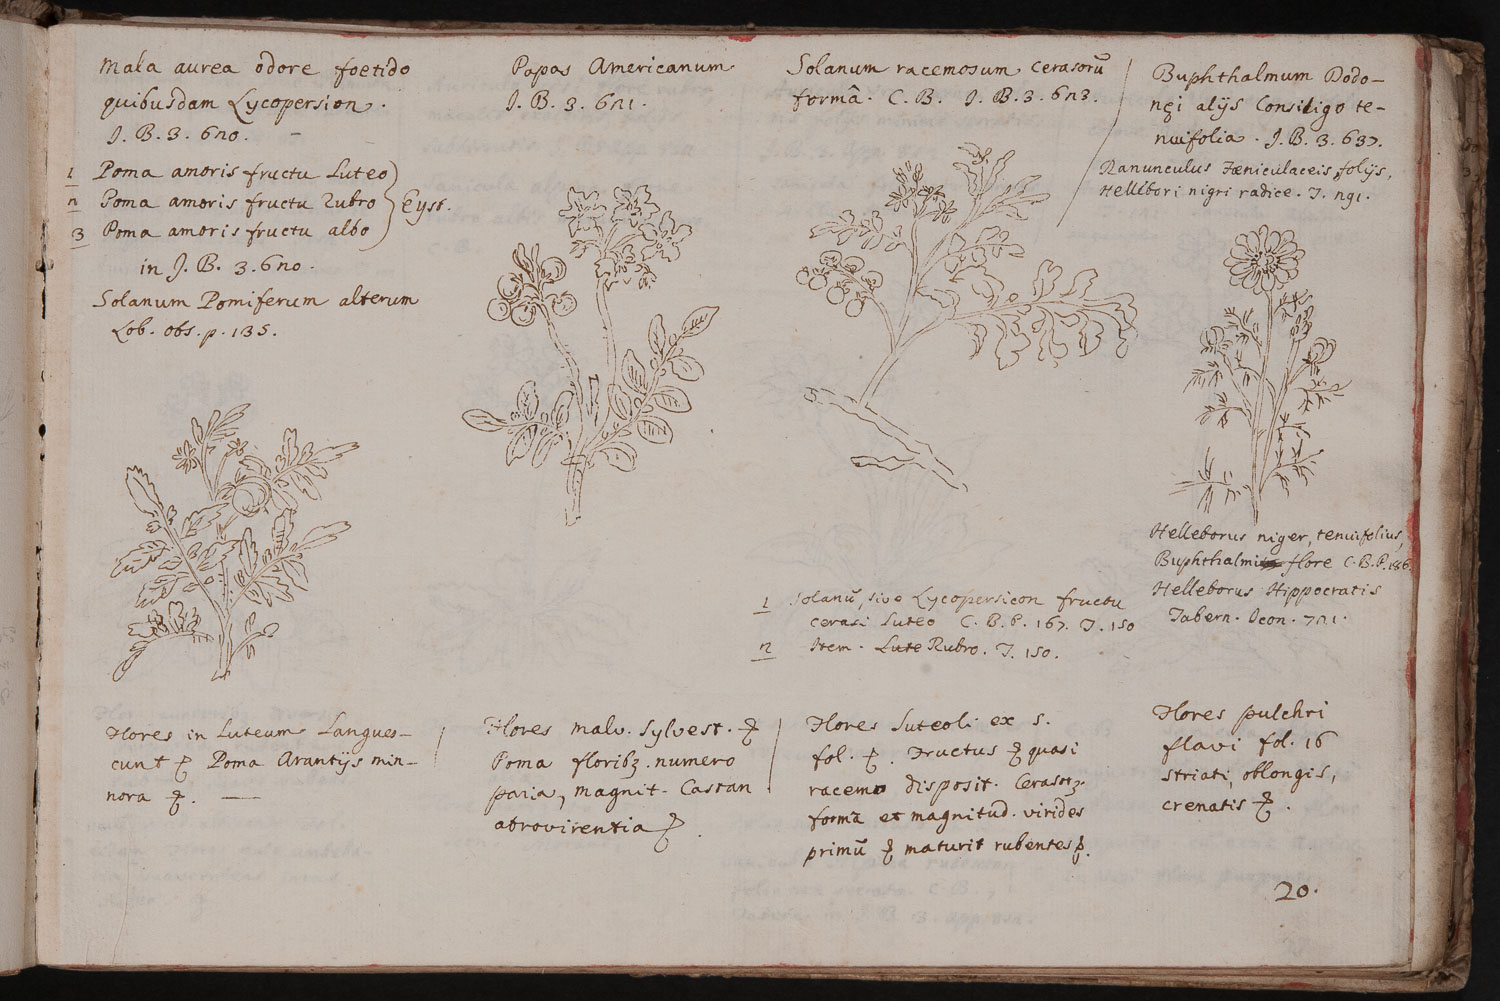 Mala aurea odore foetido
quibusdam Lycopersion.
J. B. 3. 620.
1 Poma amoris fructu Luteo
2 Poma amoris fructu Rubro } Eyst.
3 Poma amoris fructu albo
in J. B. 3. 620.
Solanum Pomiferum alterum
Lob. obs. p. 135.
Flores in Luteum Langues-
cunt Poma Arantijs min-
nora
Papas Americanum
J. B. 3. 621.
Flores malv. Sylvest.
Poma floribz. numero
paria, magnit. Castan
atrovirentia
Solanum racemosum Cerasorũ
formâ. C. B. J. B. 3. 623.
1 Solanũ, sive Lycopersicon fructu
cerasi Luteo C. B. P. 167. T. 150
2 Item. Rubro. T. 150.
Flores Luteoli ex 5.
fol. Fructus quasi
racemo disposit.
formâ et magnitud. virides
primũ maturit rubentes
Buphthalmum Dodo-
nęi alijs Consiligo te-
nuifolia. J. B. 3. 637.
Ranunculus Fæniculaceis folijs,
Hellebori nigri radice. T. 291.
Helleborus niger, tenuifolius,
Buphthalmi flore C. B. P. 186.
Helleborus Hippocratis
Tabern. Icon. 721.
Flores pulchri
flavi fol. 16
striati, oblongis,
crenatis
20.